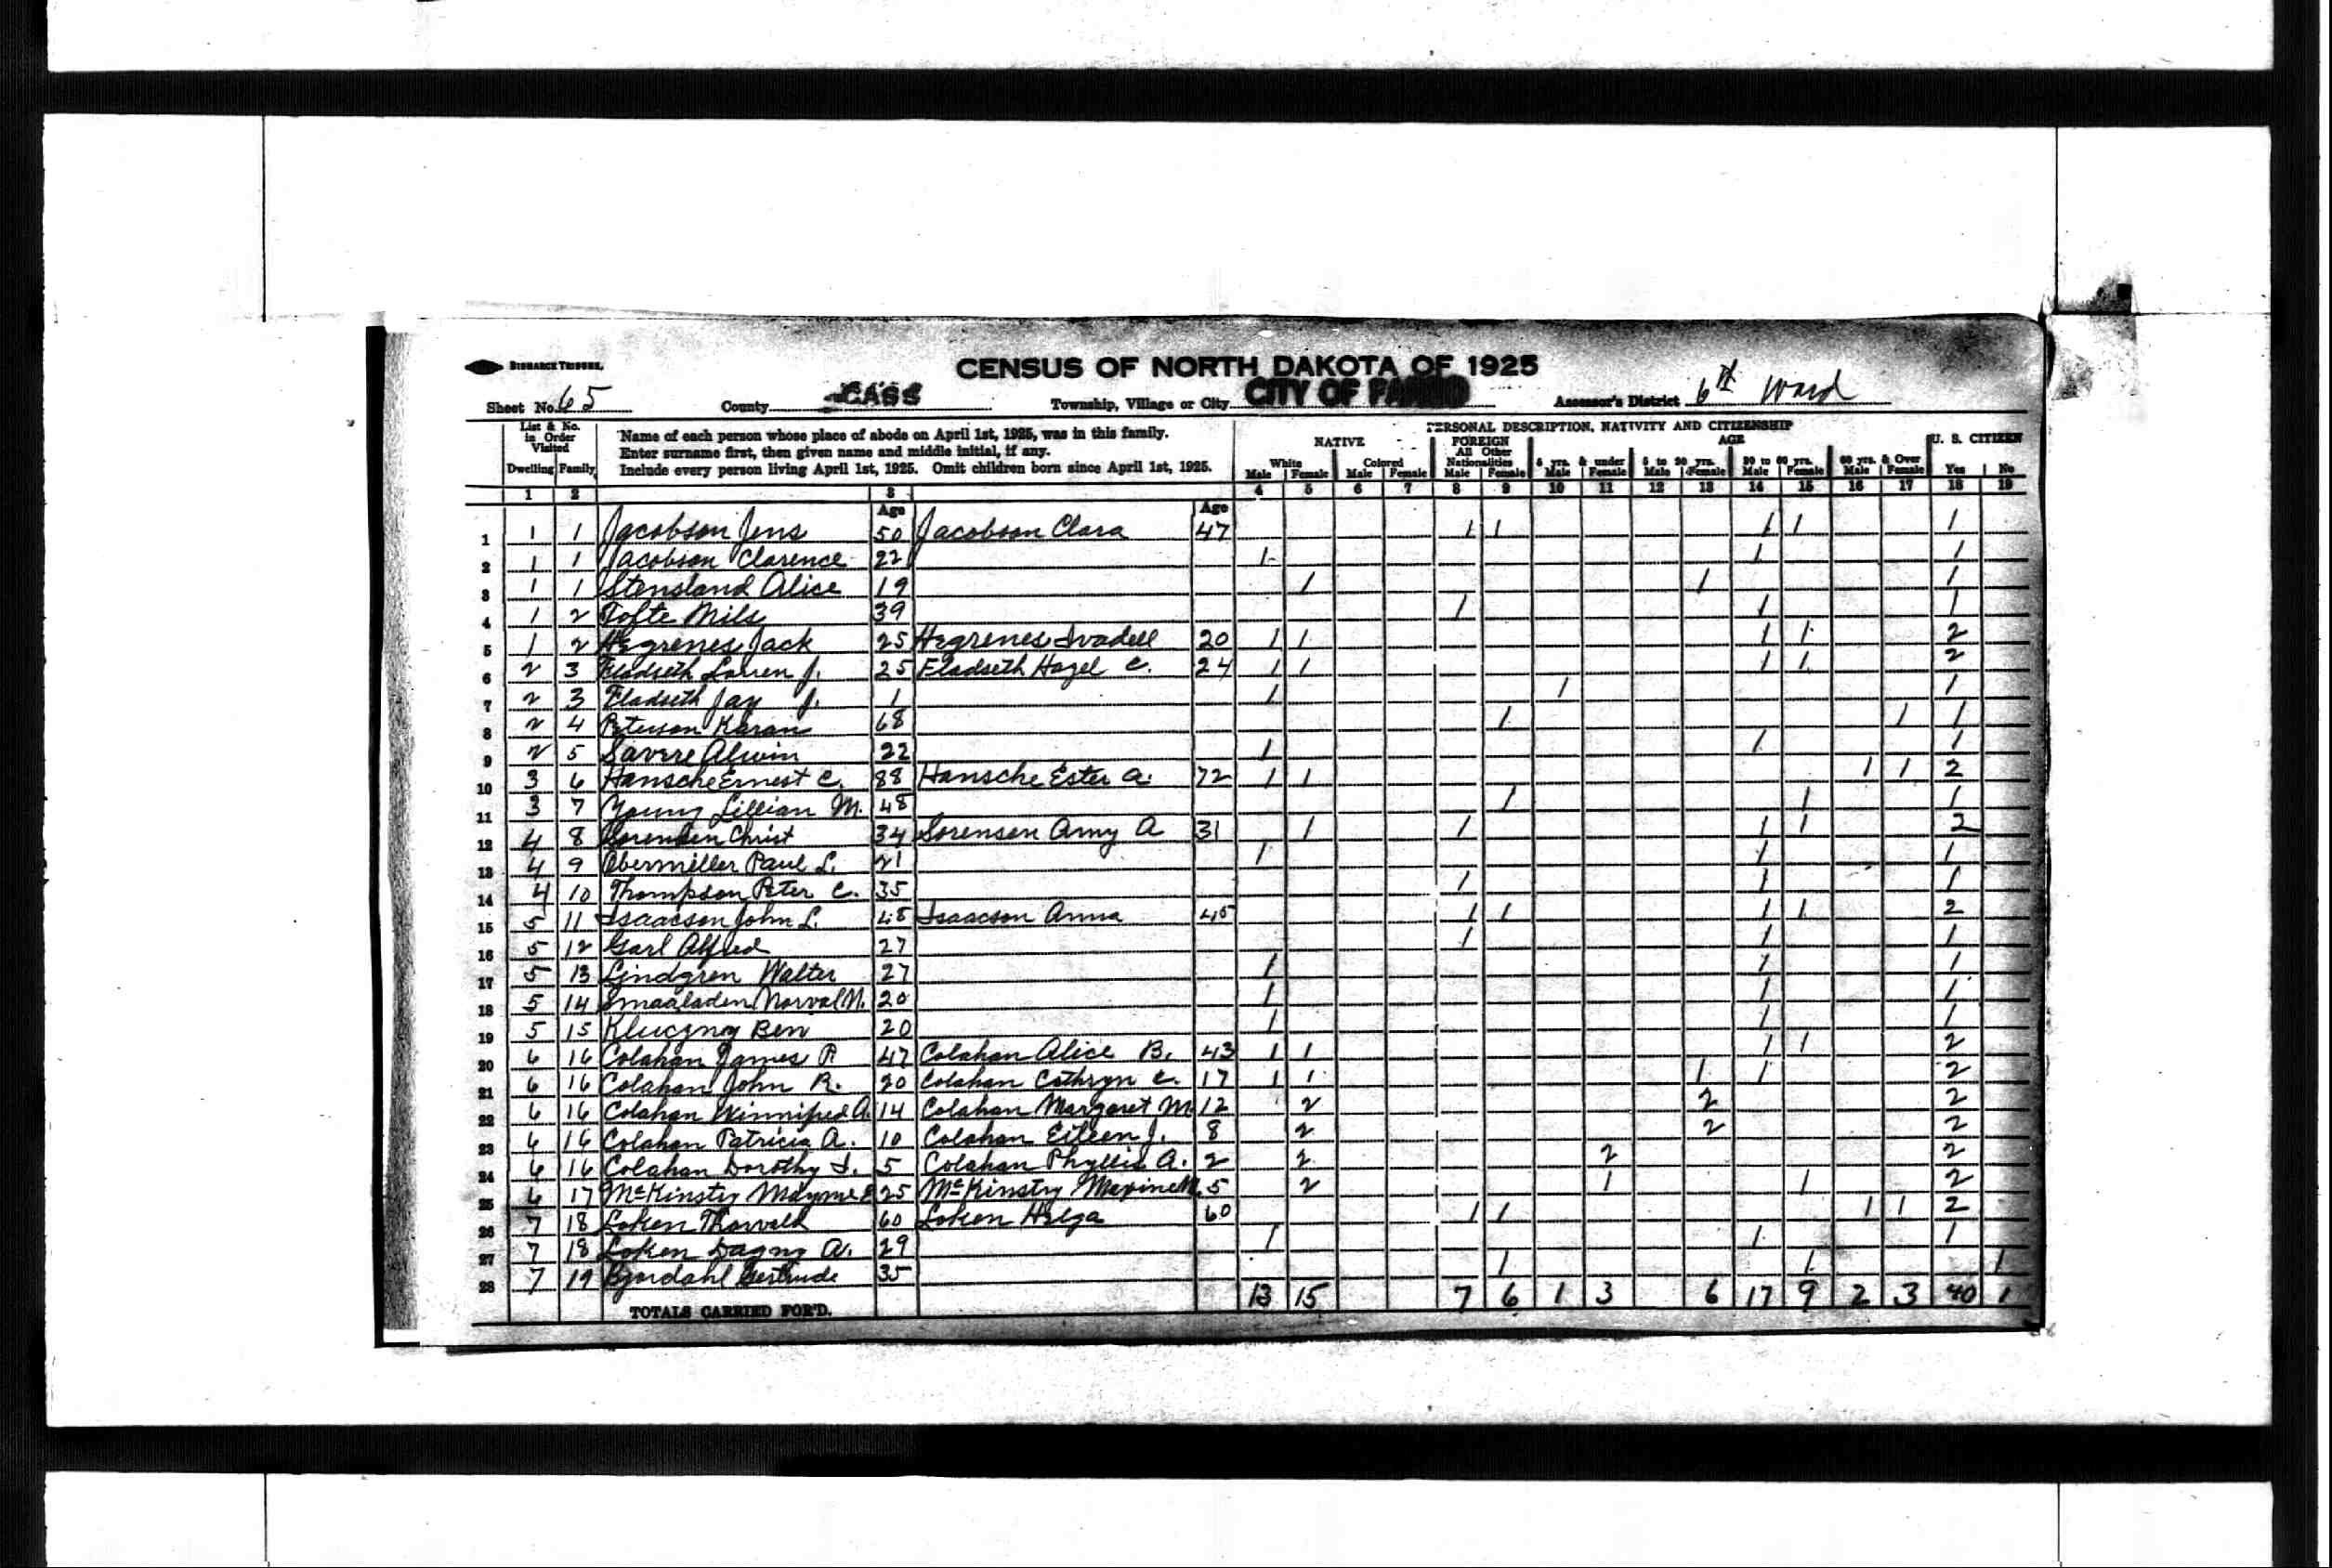 BISMARCK TRIBUNE.
CENSUS OF NORTH DAKOTA OF 1925
Sheet No. 65 County CASS Township, Village or City CITY OF FARGO Assessor's District 6th Ward
List & No. in Order Visited
Name of each person whose place of abode on April 1st, 1925, was in this family.
Enter surname first, then given name and middle initial, if any.
Include every person living April 1st, 1925. Omit children born since April 1st, 1925.
PERSONAL DESCRIPTION, NATIVITY AND CITIZENSHIP
NATIVE FOREIGN AGE U. S. CITIZEN
White Colored All Other Nationalities 5 yrs. & under 5 to 20 yrs. 20 to 60 yrs. 60 yrs. & Over
Dwelling Family Male Female Male Female Male Female Male Female Male Female Male Female Male Female Yes No
1 2 3 4 5 6 7 8 9 10 11 12 13 14 15 16 17 18 19
Age Age
1 1 1 Jacobson Jens 50 Jacobson Clara 47 1 1 1 1 1
2 1 1 Jacobson Clarence 22 1 1 1
3 1 1 Stensland Alice 19 1 1 1
4 1 2 Tofte Nils 39 1 1 1
5 1 2 Hegrenes Jack 25 Hegrenes Ivadell 20 1 1 1 1 2
6 2 3 Fladseth Loren J. 25 Fladseth Hazel C. 24 1 1 1 1 2
7 2 3 Fladseth Jay J. 1 1 1 1
8 2 4 Peterson Karan 68 1 1 1
9 2 5 Savere Alwin 22 1 1 1
10 3 6 Hansche Ernest C. 88 Hansche Ester A. 72 1 1 1 1 2
11 3 7 Young Lillian M. 48 1 1 1
12 4 8 Sorensen Christ 34 Sorensen Amy A 31 1 1 1 1 2
13 4 9 Obermiller Paul L. 21 1 1 1
14 4 10 Thompson Peter C. 35 1 1 1
15 5 11 Isaacson John L. 48 Isaacson Anna 45 1 1 1 1 2
16 5 12 Garl Alfred 27 1 1 1
17 5 13 Lindgren Walter 27 1 1 1
18 5 14 Smaaladen Norval N. 20 1 1 1
19 5 15 Kluczny Ben 20 1 1 1
20 6 16 Colahan James P 47 Colahan Alice B. 43 1 1 1 1 2
21 6 16 Colahan John R. 20 Colahan Cathryn C. 17 1 1 1 1 2
22 6 16 Colahan Winnifred A. 14 Colahan Margaret M. 12 2 2 2
23 6 16 Colahan Patricia A. 10 Colahan Eileen J. 8 2 2 2
24 6 16 Colahan Dorothy I. 5 Colahan Phyllis A. 2 2 2 2
25 6 17 McKinstry Mayme E 25 McKinstry Maxine M. 5 2 1 1 2
26 7 18 Loken Thorvald 60 Loken Helga 60 1 1 1 1 2
27 7 18 Loken Dagny A. 29 1 1 1
28 7 19 Bjordahl Gertrude 35 1 1 1
TOTALS CARRIED FOR'D. 13 15 7 6 1 3 6 17 9 2 3 40 1